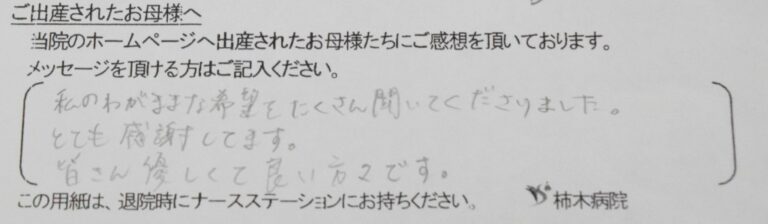 ご出産されたお母様へ
当院のホームページへ出産されたお母様たちにご感想を頂いております。
メッセージを頂ける方はご記入ください。
私のわがままな希望をたくさん聞いてくださりました。
とても感謝してます。
皆さん優しくて良い方々です。
この用紙は、退院時にナースステーションにお持ちください。 柿木病院